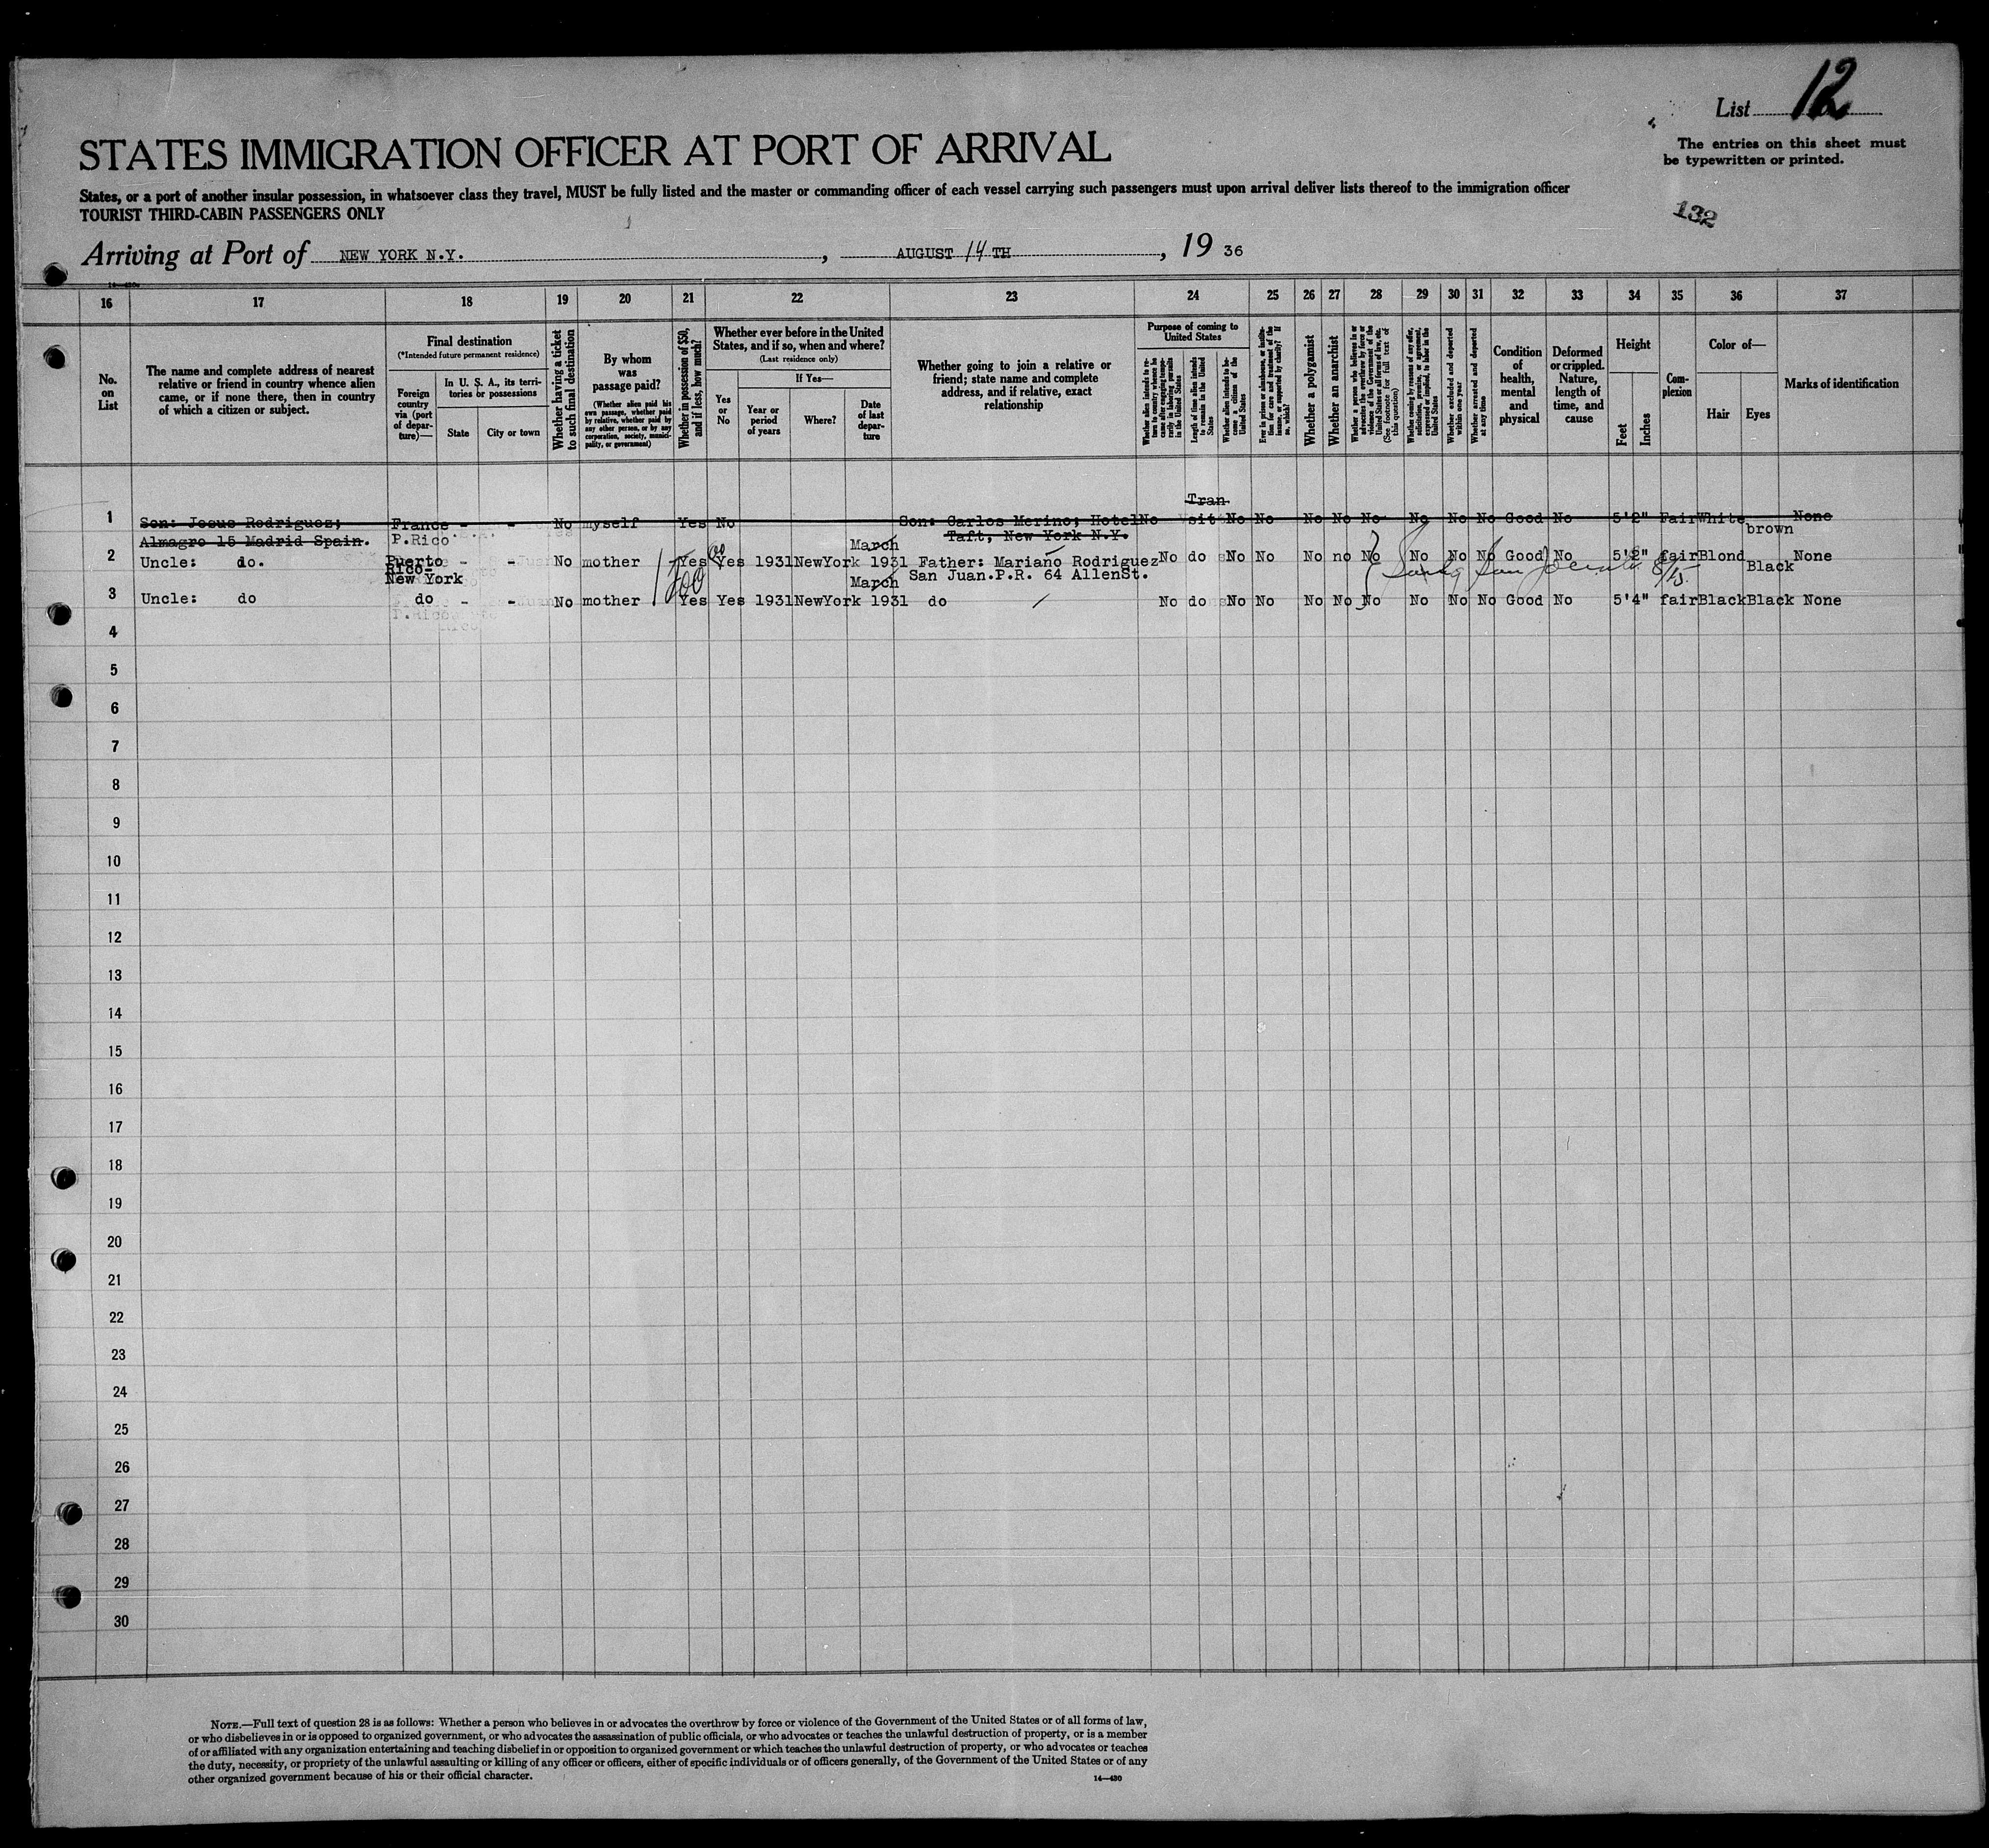 List 12
The entries on this sheet must
be typewritten or printed.
STATES IMMIGRATION OFFICER AT PORT OF ARRIVAL
States, or a port of another insular possession, in whatsoever class they travel, MUST be fully listed and the master or commanding officer of each vessel carrying such passengers must upon arrival deliver lists thereof to the immigration officer
TOURIST THIRD-CABIN PASSENGERS ONLY
132
Arriving at Port of NEW YORK N.Y. , AUGUST 14 TH , 19 36
16 17 18 19 20 21 22 23 24 25 26 27 28 29 30 31 32 33 34 35 36 37
No.
on
List
The name and complete address of nearest
relative or friend in country whence alien
came, or if none there, then in country
of which a citizen or subject.
Final destination
(*Intended future permanent residence)
Foreign
country
via (port
of depar-
ture)—
In U. S. A., its terri-
tories or possessions
State
City or town
Whether having a ticket
to such final destination
By whom
was
passage paid?
(Whether alien paid his
own passage, whether paid
by relative, whether paid by
any other person, or by any
corporation, society, munici-
pality, or government)
Whether in possession of $50,
and if less, how much?
Whether ever before in the United
States, and if so, when and where?
(Last residence only)
Yes
or
No
If Yes—
Year or
period
of years
Where?
Date
of last
depar-
ture
Whether going to join a relative or
friend; state name and complete
address, and if relative, exact
relationship
Purpose of coming to
United States
Whether alien intends to re-
turn to country whence he
came after engaging tempo-
rarily in laboring pursuits
in the United States
Length of time alien intends
to remain in the United
States
Whether alien intends to be-
come a citizen of the
United States
Ever in prison or almshouse, or institu-
tion for care and treatment of the
insane, or supported by charity? If
so, which?
Whether a polygamist
Whether an anarchist
Whether a person who believes in or
advocates the overthrow by force or
violence of the Government of the
United States or all forms of law, etc.
(See footnote for full text of
this question)
Whether coming by reason of any offer,
solicitation, promise, or agreement,
expressed or implied, to labor in the
United States
Whether excluded and deported
within one year
Whether arrested and deported
at any time
Condition
of
health,
mental
and
physical
Deformed
or crippled.
Nature,
length of
time, and
cause
Height
Feet
Inches
Com-
plexion
Color of—
Hair
Eyes
Marks of identification
Tran
1 Son: Jesus Rodriguez; France - - No myself Yes No Son: Carlos Merino; Hotel No sit No No No No No No No No Good No 5'2" Fair White brown None
Almagro 15 Madrid Spain. P.Rico Taft, New York N.Y.
March
2 Uncle: do. Puerto - - No mother Yes Yes 1931 NewYork 1931 Father: Mariano Rodriguez No do No No No no No No No No Good No 5'2" fair Blond Black None
Rico-
New York March San Juan.P.R. 64 AllenSt.
8/15.
3 Uncle: do do - - No mother Yes Yes 1931 NewYork 1931 do No do No No No No No No No No Good No 5'4" fair Black Black None
4
5
6
7
8
9
10
11
12
13
14
15
16
17
18
19
20
21
22
23
24
25
26
27
28
29
30
NOTE.—Full text of question 28 is as follows: Whether a person who believes in or advocates the overthrow by force or violence of the Government of the United States or of all forms of law,
or who disbelieves in or is opposed to organized government, or who advocates the assassination of public officials, or who advocates or teaches the unlawful destruction of property, or is a member
of or affiliated with any organization entertaining and teaching disbelief in or opposition to organized government or which teaches the unlawful destruction of property, or who advocates or teaches
the duty, necessity, or propriety of the unlawful assaulting or killing of any officer or officers, either of specific individuals or of officers generally, of the Government of the United States or of any
other organized government because of his or their official character.
14—430